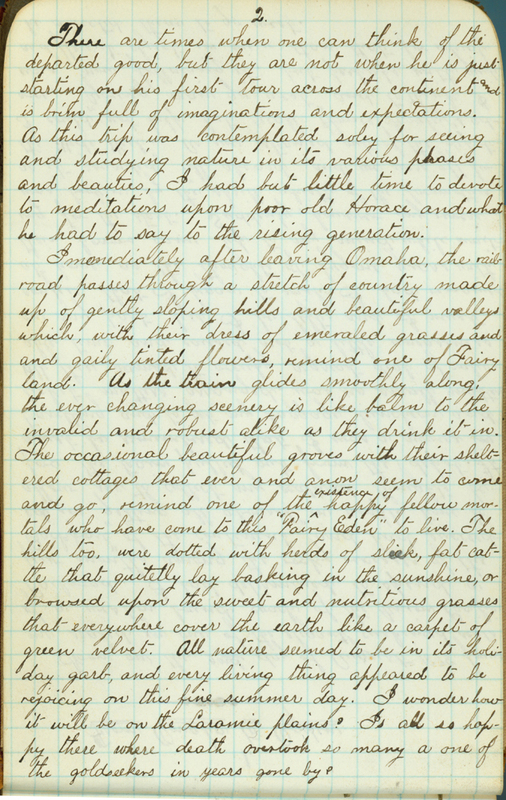 2.
There are times when one can think of the
departed good, but they are not when he is just
starting on his first tour across the continent and
is brim full of imaginations and expectations.
As this trip was contemplated soley for seeing
and studying nature in its various phases
and beauties, I had but little time to devote
to meditations upon poor old Horace and what
he had to say to the rising generation.
Immediately after leaving Omaha, the rail-
road passes through a stretch of country made
up of gently sloping hills and beautiful valleys
which, with their dress of emeraled grasses and
and gaily tinted flowers, remind one of Fairy
land. As the train glides smoothly along,
the ever changing scenery is like balm to the
invalid and robust alike as they drink it in.
The occasional beautiful groves with their shelt-
ered cottages that ever and anon seem to come
and go, remind one of the existence of happy fellow mor-
tals who have come to this "Fairy Eden" to live. The
hills too, were dotted with herds of sleek, fat cat-
tle that quitetly lay basking in the sunshine, or
browsed upon the sweet and nutritious grasses
that everywhere cover the earth like a carpet of
green velvet. All nature seemed to be in its holi-
day garb, and every living thing appeared to be
rejoicing on this fine summer day. I wonder how
it will be on the Laramie plains? Is all so hap-
py there where death overtook so many a one of
the goldseekers in years gone by?